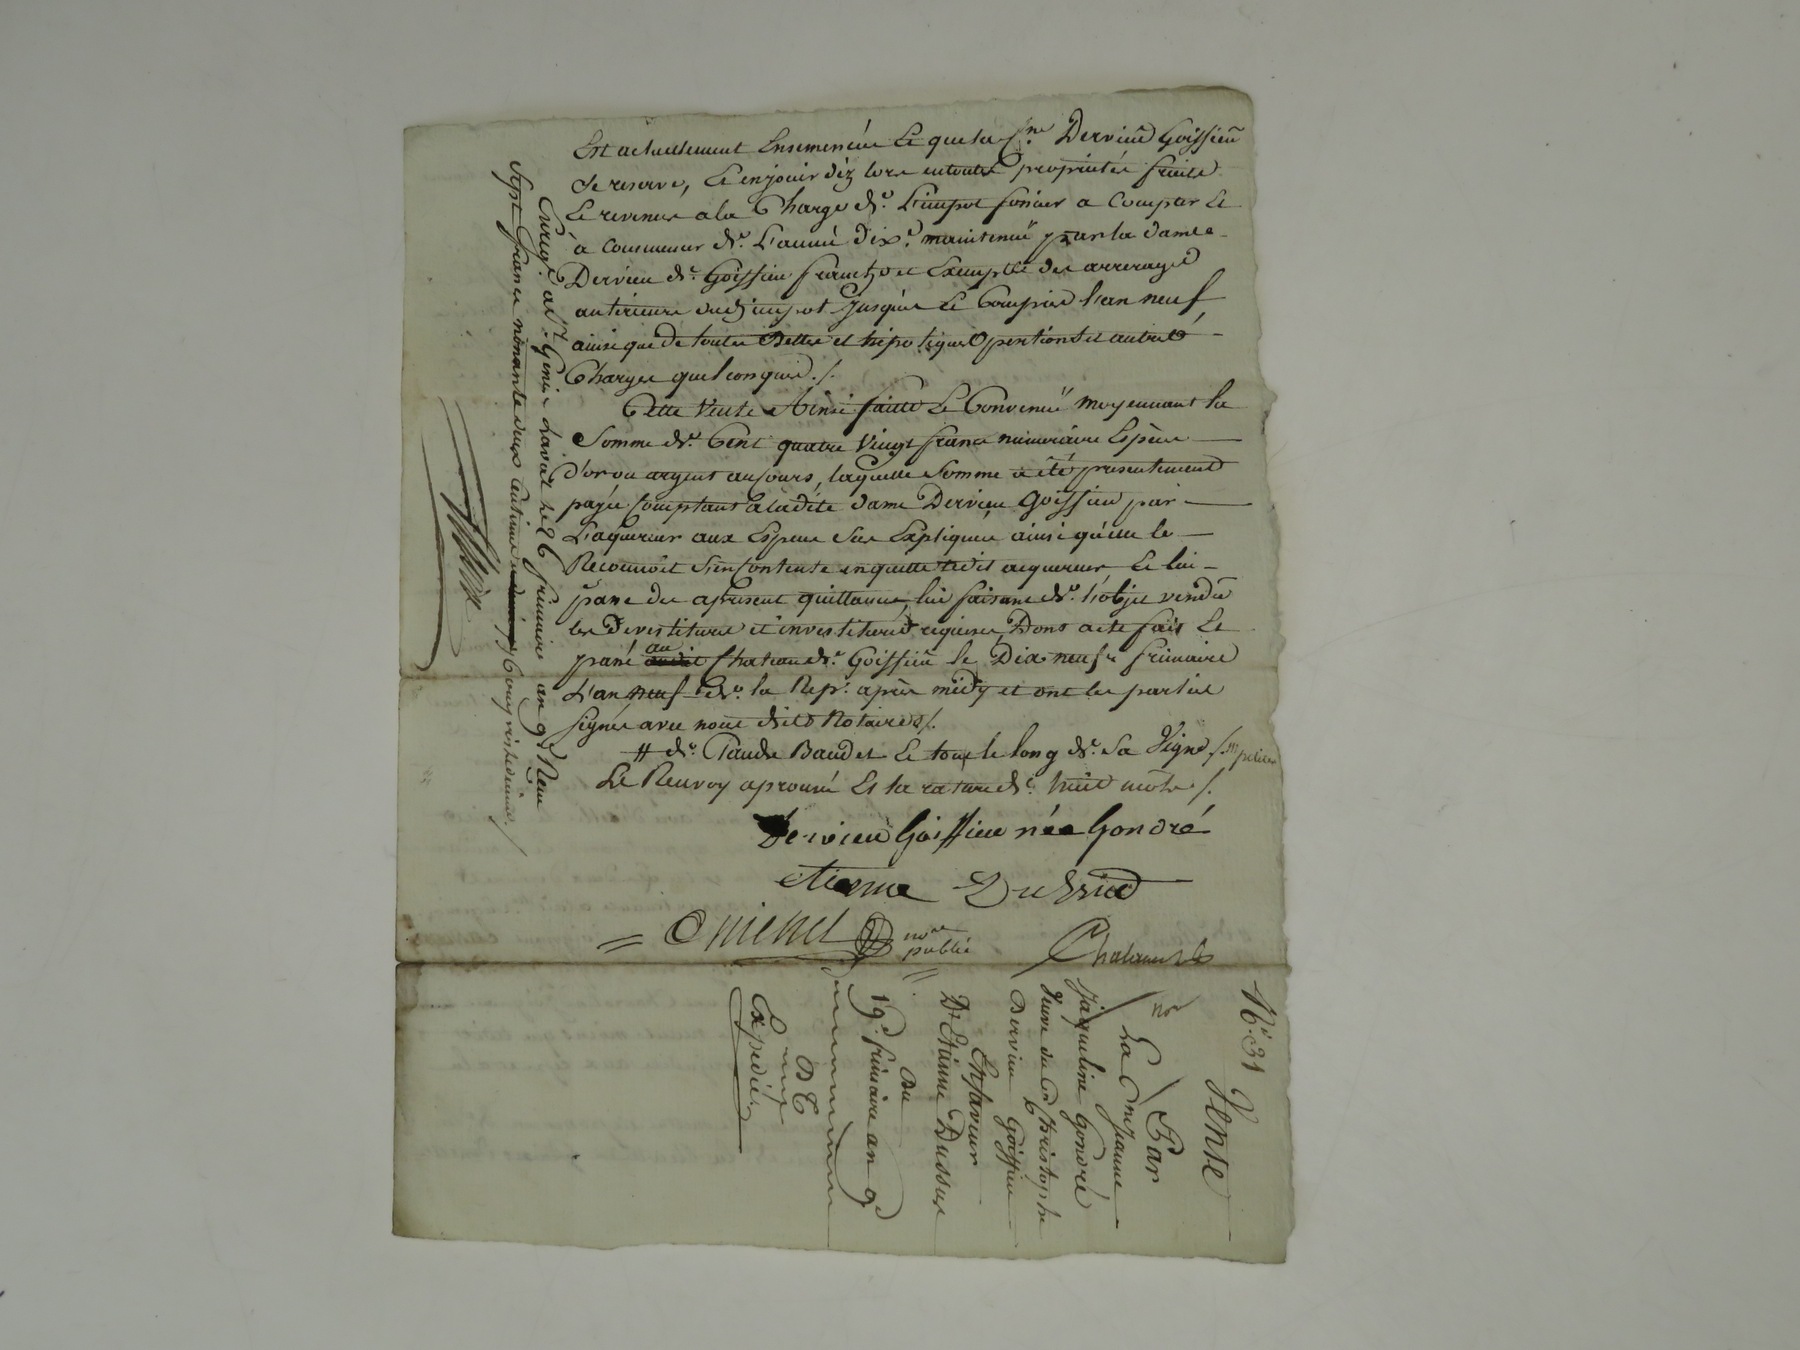 Est actuellement Ensemencée Et que la C.ne Dervieu Goiffieu
Se reserve, Et en jouir déz lors en toutes proprietés fruits
Et revenus a la Charge de L'impot foncier a Compter Et
à Commencer de L'année dix.e maintenüe par la dame
Dervieu de Goiffieu franche et Exempte des arrerages
anterieurs dudt impot jusques Et Compris l'an neuf
ainsi que de toutes Dettes et hipoteques pentions et autres
Charges quelconques ./.
Cette Vente Ainsi faitte Et Convenüe moyennant la
Somme de Cent quatre Vingt francs numeraire Espèces
d'or ou argent au Cours, laquelle Somme a été presentement
payée Comptant a la dite dame Dervieu Goiffieu par
L'aquereur aux Espèces Sus Expliquées ainsi qu'elle le
Reconnoit S'en Contente en quitte ledit aquereur Et lui
passe des apresent quittance, lui faisant de l'objet vendu
les Devestitures et investitures requises, Dont acte fait Et
passé au Chateau de Goiffieu le Dix neuf frimaire
L'an neuf de la Rep.e après midy et ont les parties
Signés avec nous dits Notaires ./.
# de Claude Baudet Et tout le long de Sa Vigne ./.
Le Renvoy aprouvé Et la rature de huit mots ./.
Dervieu Goiffieu née Gondré
etienne Dussud
no.re
public
Enregé a St Genis Laval le 26 frimaire an 9e
Sept francs nonante deux Centimes y Compris le dixieme
N.o 31
Vente
Par
La C.ne Jeanne
Jaqueline Gondré
Veuve du Cn Christophe
Dervieu Goiffieu
En faveur
De Etienne Dussud
Du
19.e frimaire an 9.e
Expédiée